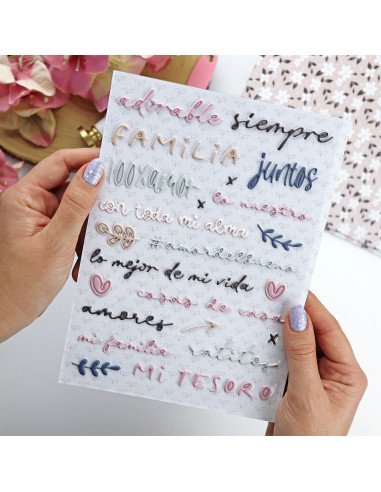 adorable siempre
FAMILIA
juntos
100xamor
lo nuestro
con toda mi alma
#amordelbueno
lo mejor de mi vida
cosas de casa
amores
mi familia ratitos
MI TESORO